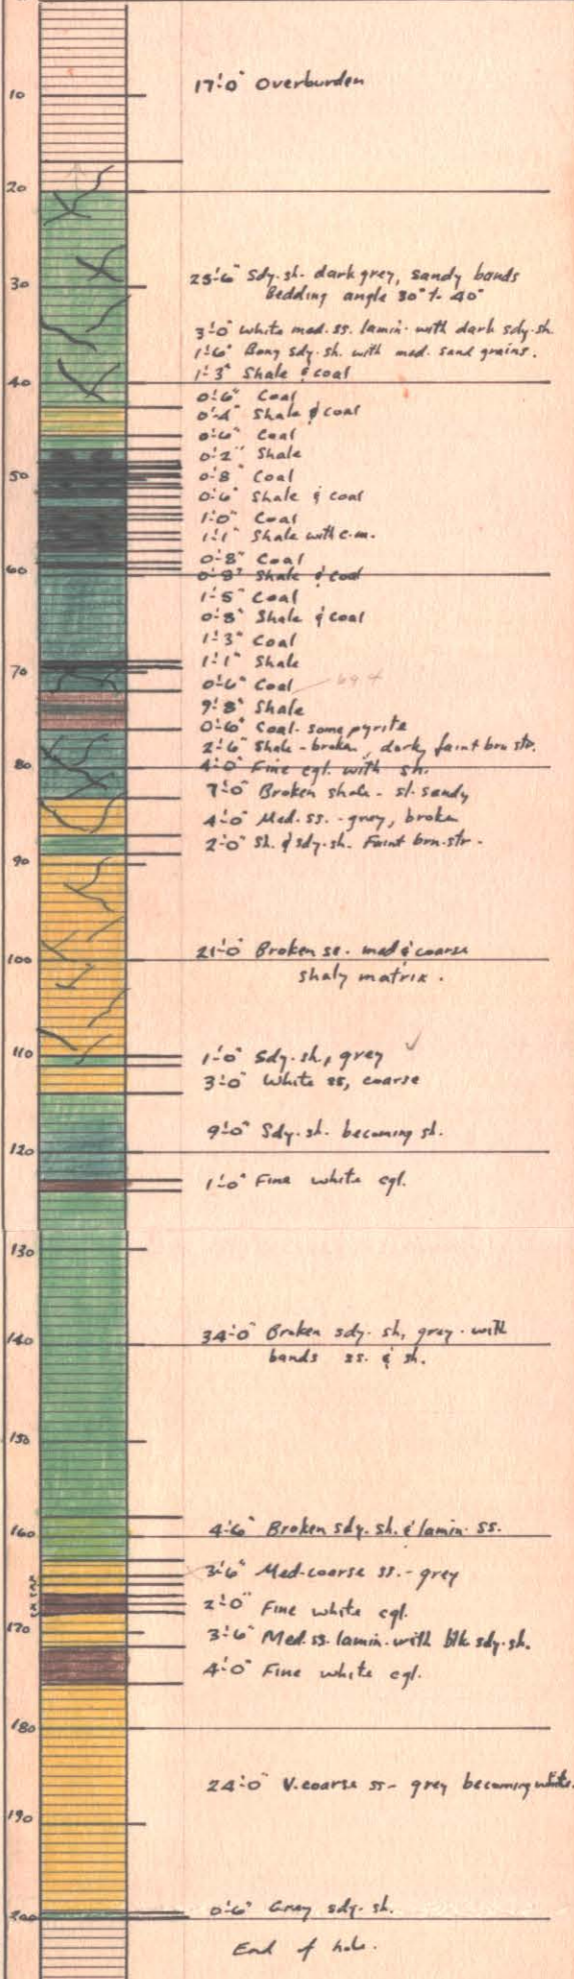 17'-0" Overburden
10
20
25'-6" Sdy. sh. dark grey, sandy bands
30
Bedding angle 30° to 40°
3'-0" White med. ss. lamin. with dark sdy. sh.
1'-6" Bony sdy. sh. with med. sand grains.
1'-3" Shale & coal
40
0'-6" Coal
0'-4" Shale & coal
0'-6" Coal
0'-2" Shale
50
0'-8" Coal
0'-6" Shale & coal
1'-0" Coal
1'-1" Shale with c.m.
0'-8" Coal
60
0'-8" Shale & coal
1'-5" Coal
0'-8" Shale & coal
1'-3" Coal
1'-1" Shale
70
0'-6" Coal 69.4
9'-8" Shale
0'-6" Coal - some pyrite
2'-6" Shale - broken, dark, faint brn str.
80
4'-0" Fine cgl. with sh.
7'-0" Broken shale - sl. sandy
4'-0" Med. ss. - grey, broken
2'-0" Sh. & sdy. sh. Faint brn. str.
90
21'-0" Broken ss. med & coarse
100
shaly matrix.
110
1'-0" Sdy. sh., grey ✓
3'-0" White ss, coarse
9'-0" Sdy. sh. becoming sh.
120
1'-0" Fine white cgl.
130
34'-0" Broken sdy. sh, grey. with
140
bands ss. & sh.
150
160
4'-6" Broken sdy. sh. & lamin. ss.
3'-6" Med-coarse ss. - grey
2'-0" Fine white cgl.
170
3'-6" Med. ss. lamin. with blk sdy. sh.
4'-0" Fine white cgl.
180
24'-0" V. coarse ss - grey becoming white.
190
200
0'-6" Grey sdy. sh.
End of hole.